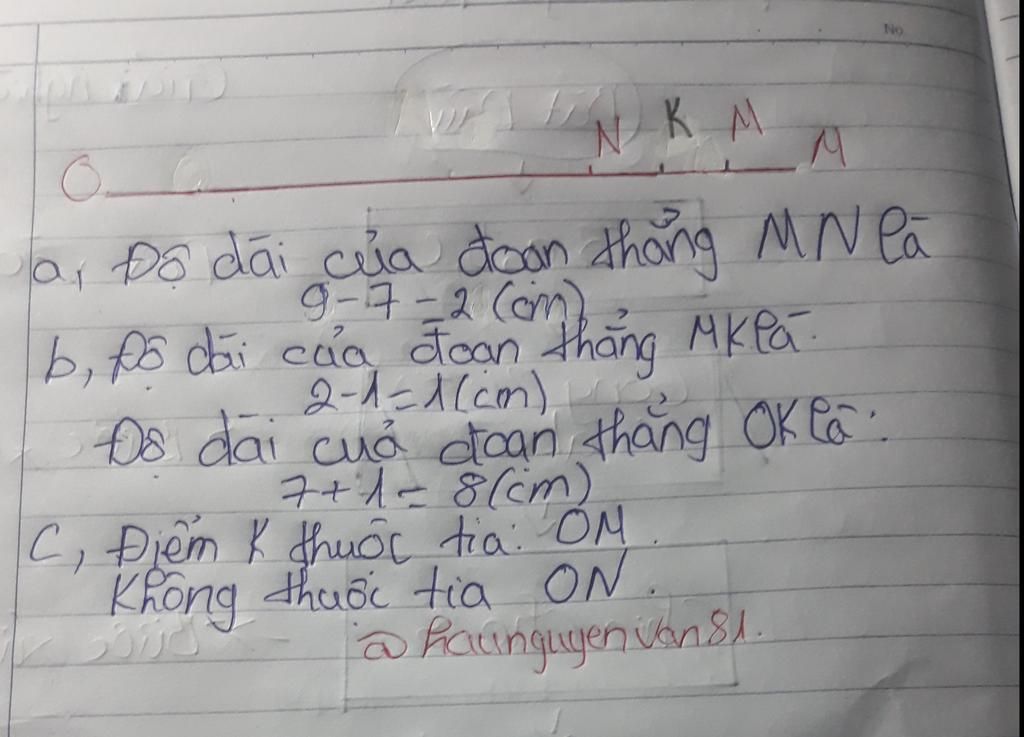 No
N K M
O M
a, Độ dài của đoan thẳng MN là
9-7=2 (cm)
b, Độ dài của đoan thẳng MK là:
2-1=1(cm)
Độ dài cuả đoan thẳng OK là:
7+1= 8(cm)
C, Điểm K thuộc tia: OM.
Không thuộc tia ON.
@ haunguyenvan81.